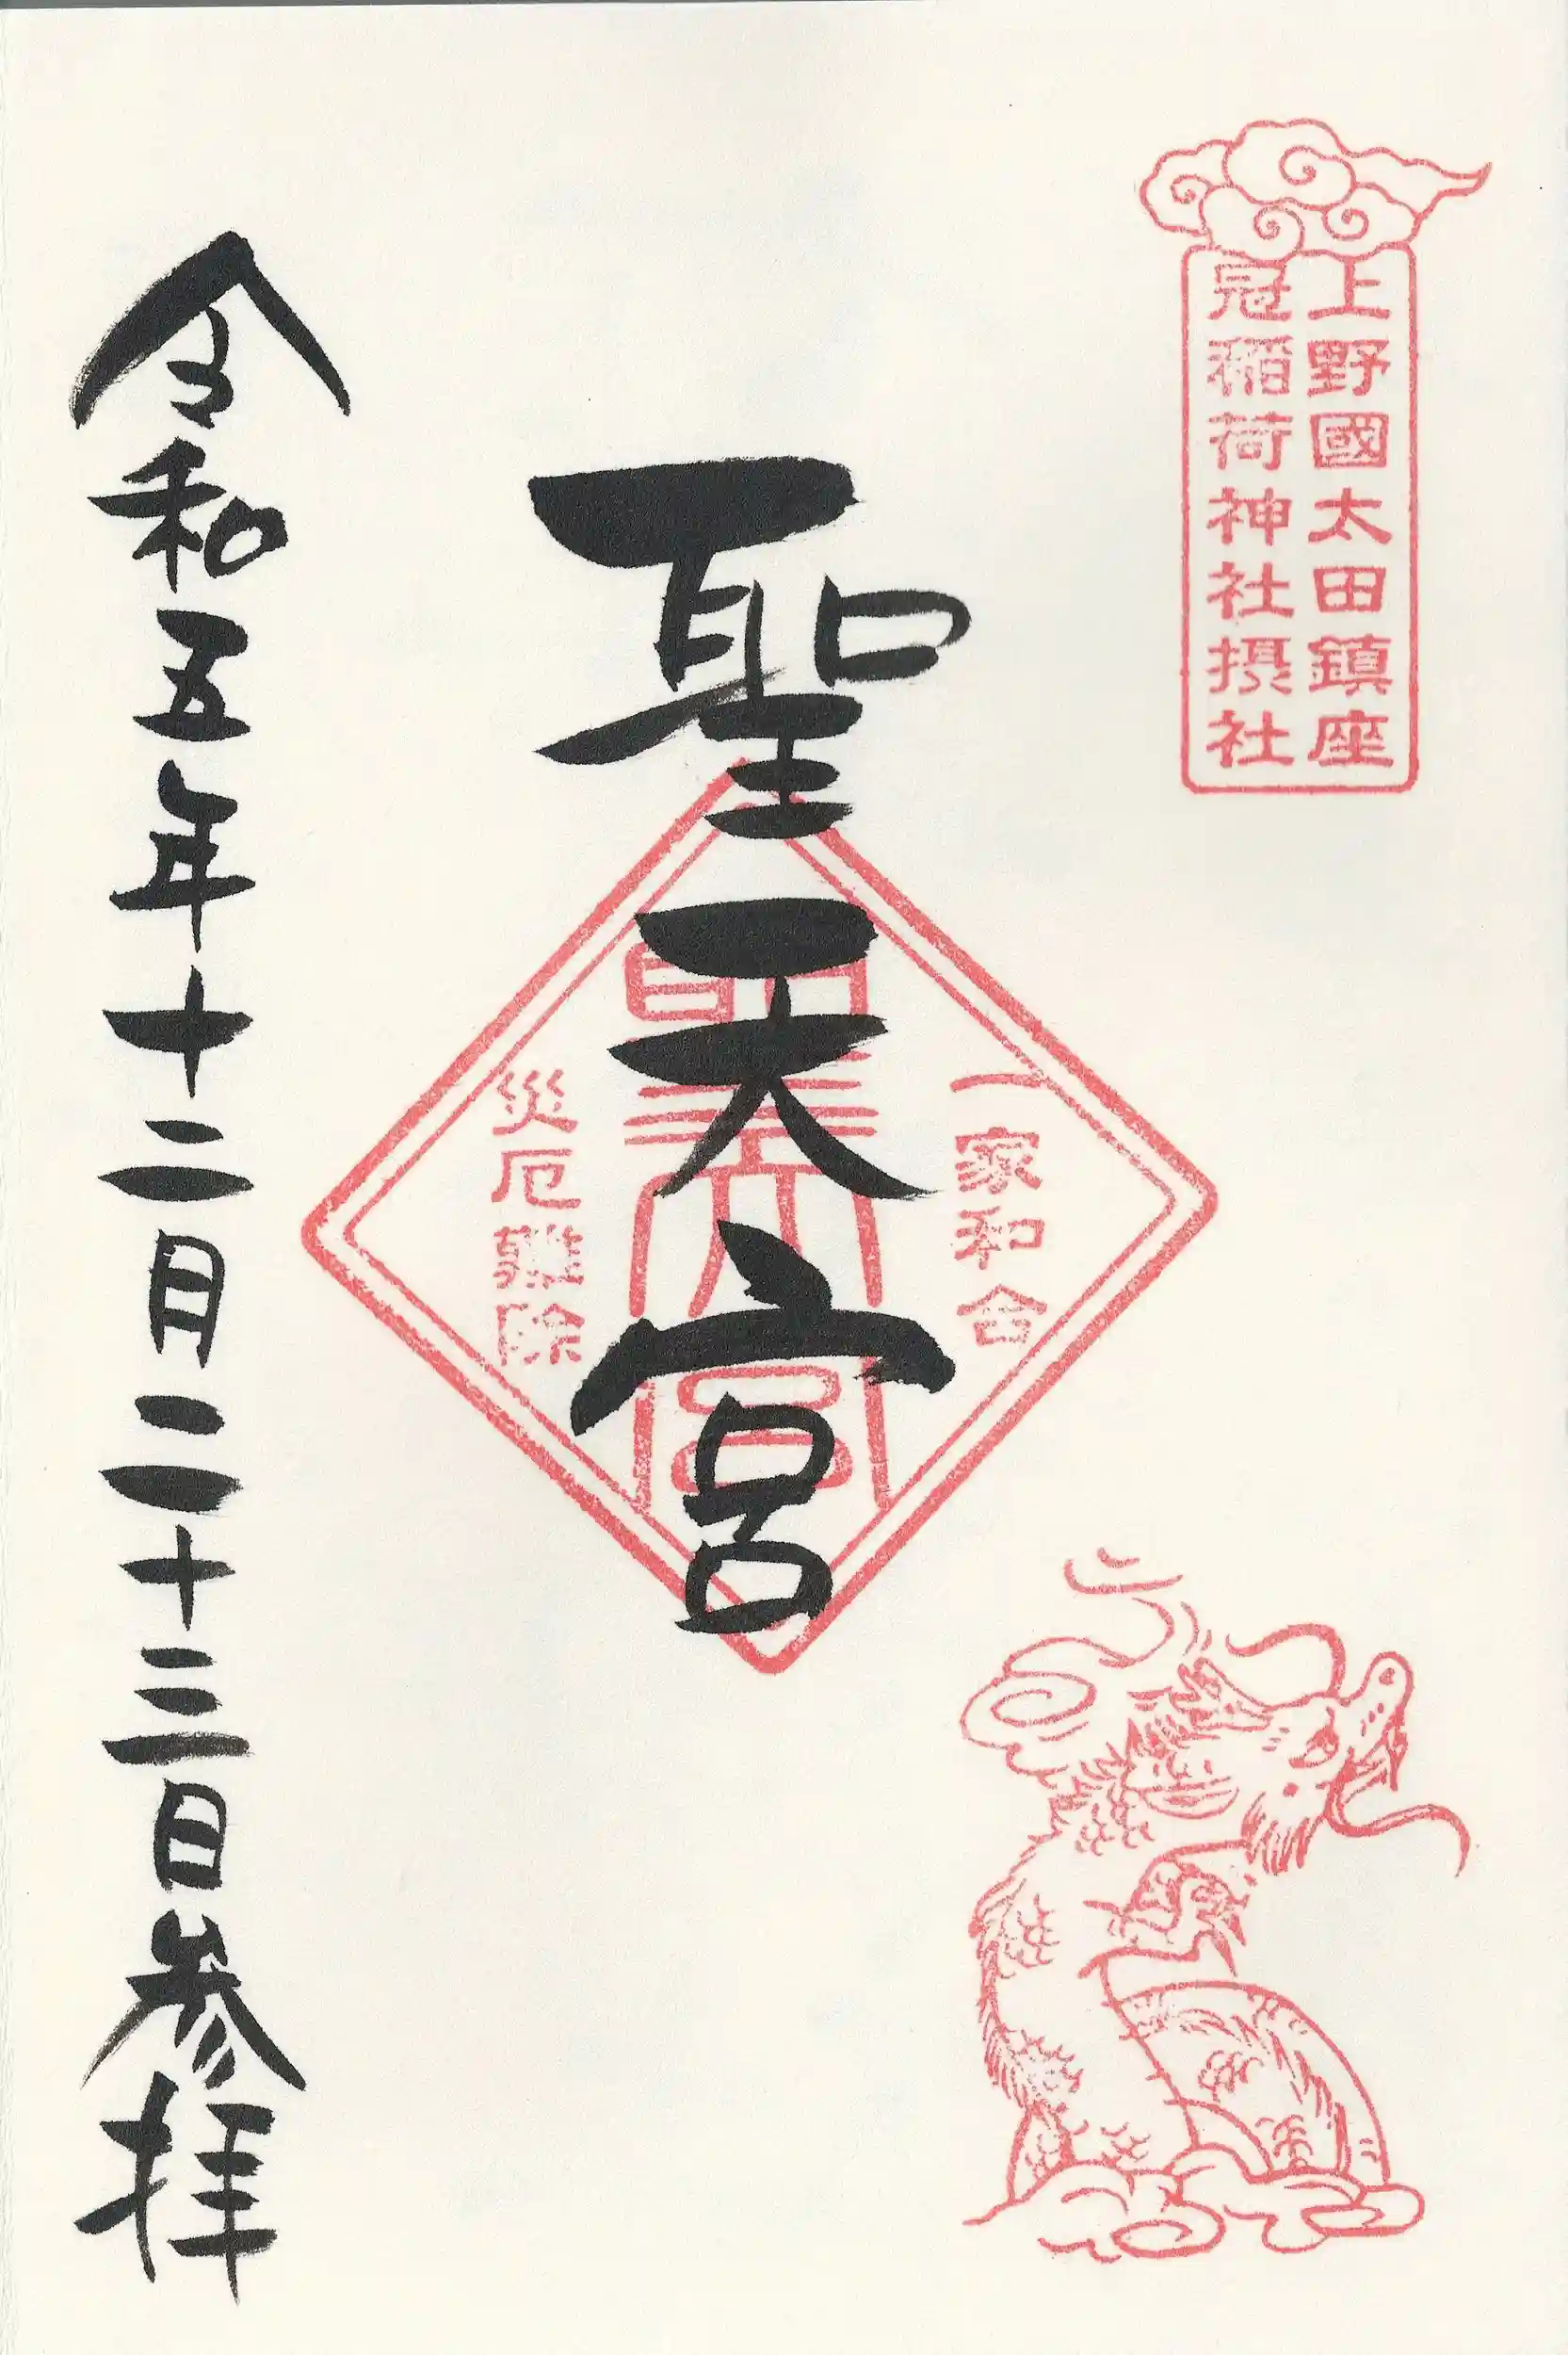 上野國太田鎮座
冠稲荷神社摂社
聖天宮
一家和合
聖天宮
災厄難除
令和五年十二月二十三日参拝